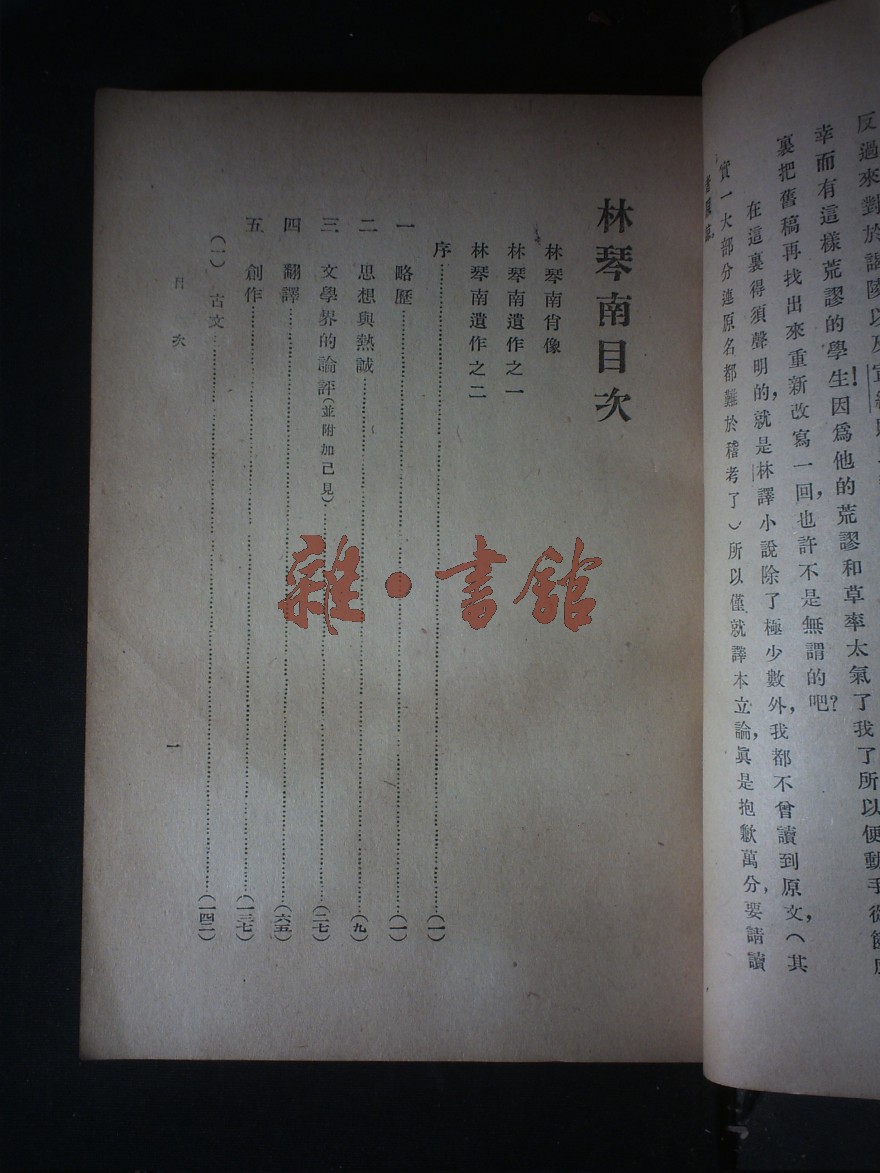 反過來對於
幸而有這樣荒謬的學生！因爲他的荒謬和草率太氣了我了所以便動手從
裏把舊稿再找出來重新改寫一回，也許不是無謂的吧？
在這裏得須聲明的，就是林譯小說除了極少數外，我都不曾讀到原文，（其
實一大部分連原名都難於稽考了）所以僅就譯本立論，眞是抱歉萬分，要請讀
林琴南目次
林琴南肖像
林琴南遺作之一
林琴南遺作之二
序……（一）
一 略歷……（一）
二 思想與熱誠……（九）
三 文學界的論評（並附加己見）……（二七）
四 翻譯……（六五）
五 創作……（一三七）
（一） 古文……（一四二）
目次
一
雜·書館